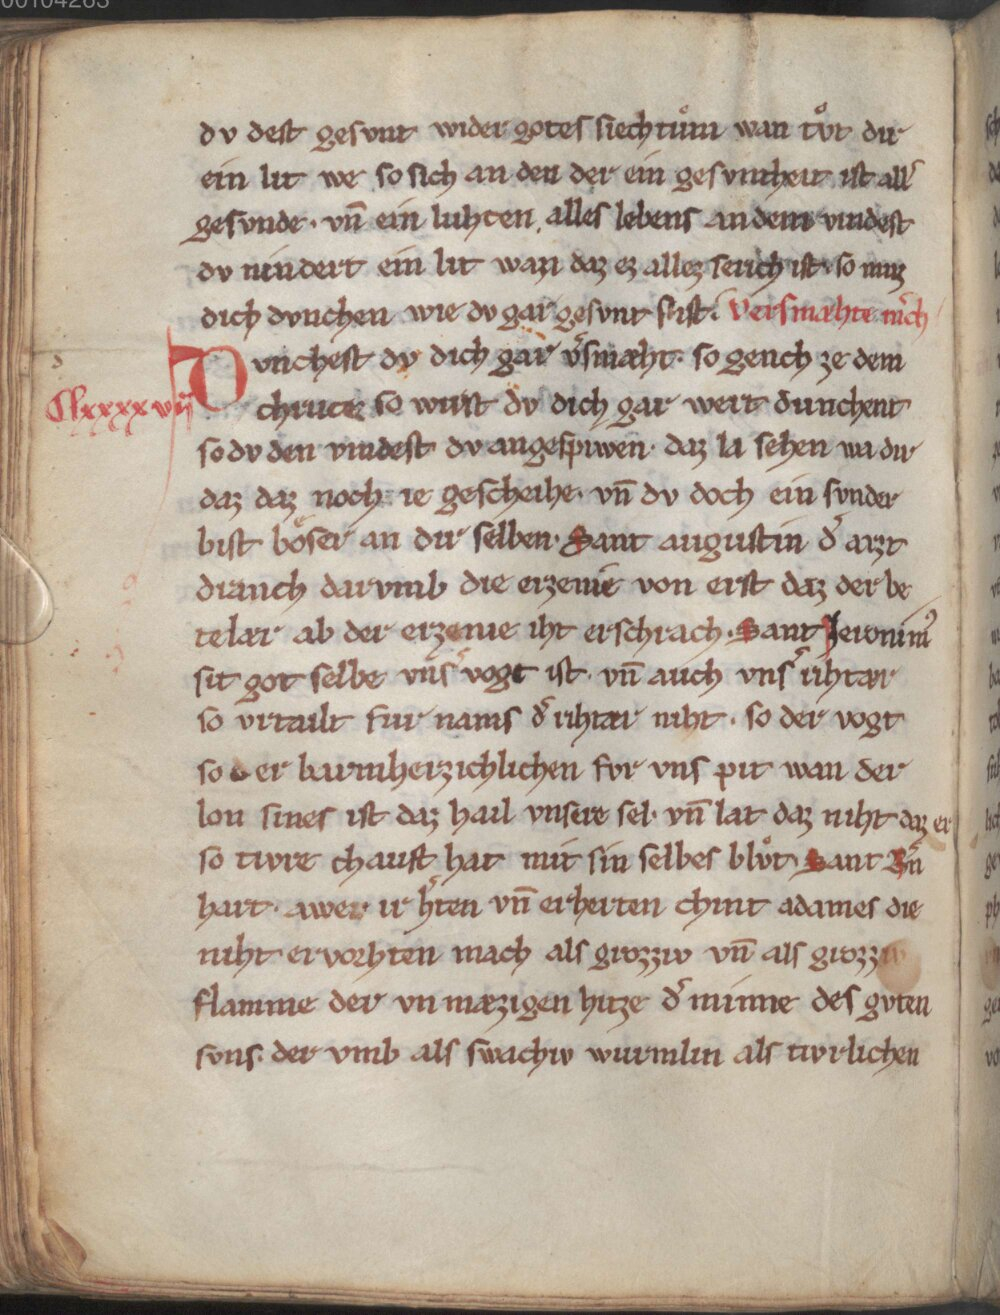 00104263
dv dest gesvnt wider gotes siechtům wan tv̊t dir
ein lit we so sich an den der ein gesvntheit ist all̄
gesvnde · vn̄ ein luhten alles lebens an dem vindest
dv nindert ein lit wan daz ez allez serich ist · so muz
dich dvnchen wie dv gar gesvnt sist · Versmæhte mēch
Dvnchest dv dich gar v̄smæht · so gench ze dem
Clxxxxvij
chrucz so wirst dv dich gar wert dunchent
so dv den vindest dv angespiwen · daz la sehen wa dir
daz daz noch ie gescheihe · vn̄ dv doch ein svnder
bist böser an dir selben · Sant augustin d̄ arzt
dranch darvmb die erzenie von erst daz der be
telær ab der erzenie iht erschrach · Sant Jeronim᾽
sit got selbe vns̄ vogt ist · vn̄ auch vns̄ rihtær
so vrtailt fur nams d̄ rihtær niht · so der vogt
so er barmherzichlichen fvr vns pit wan der
lon sines ist daz hail vnsere sel · vn̄ lat daz niht daz er
so tivre chauft hat mit sin selbes blv̊t · Sant B̄n
hart · awer ir h̄ten vn̄ erherten chint adames die
niht ervorhten mach als grozziv vn̄ als grozziv
flamme der vn mæzigen hitze d̄ minne des gvten
svns · der vmb als swachiv wurmlin als tivrlichen